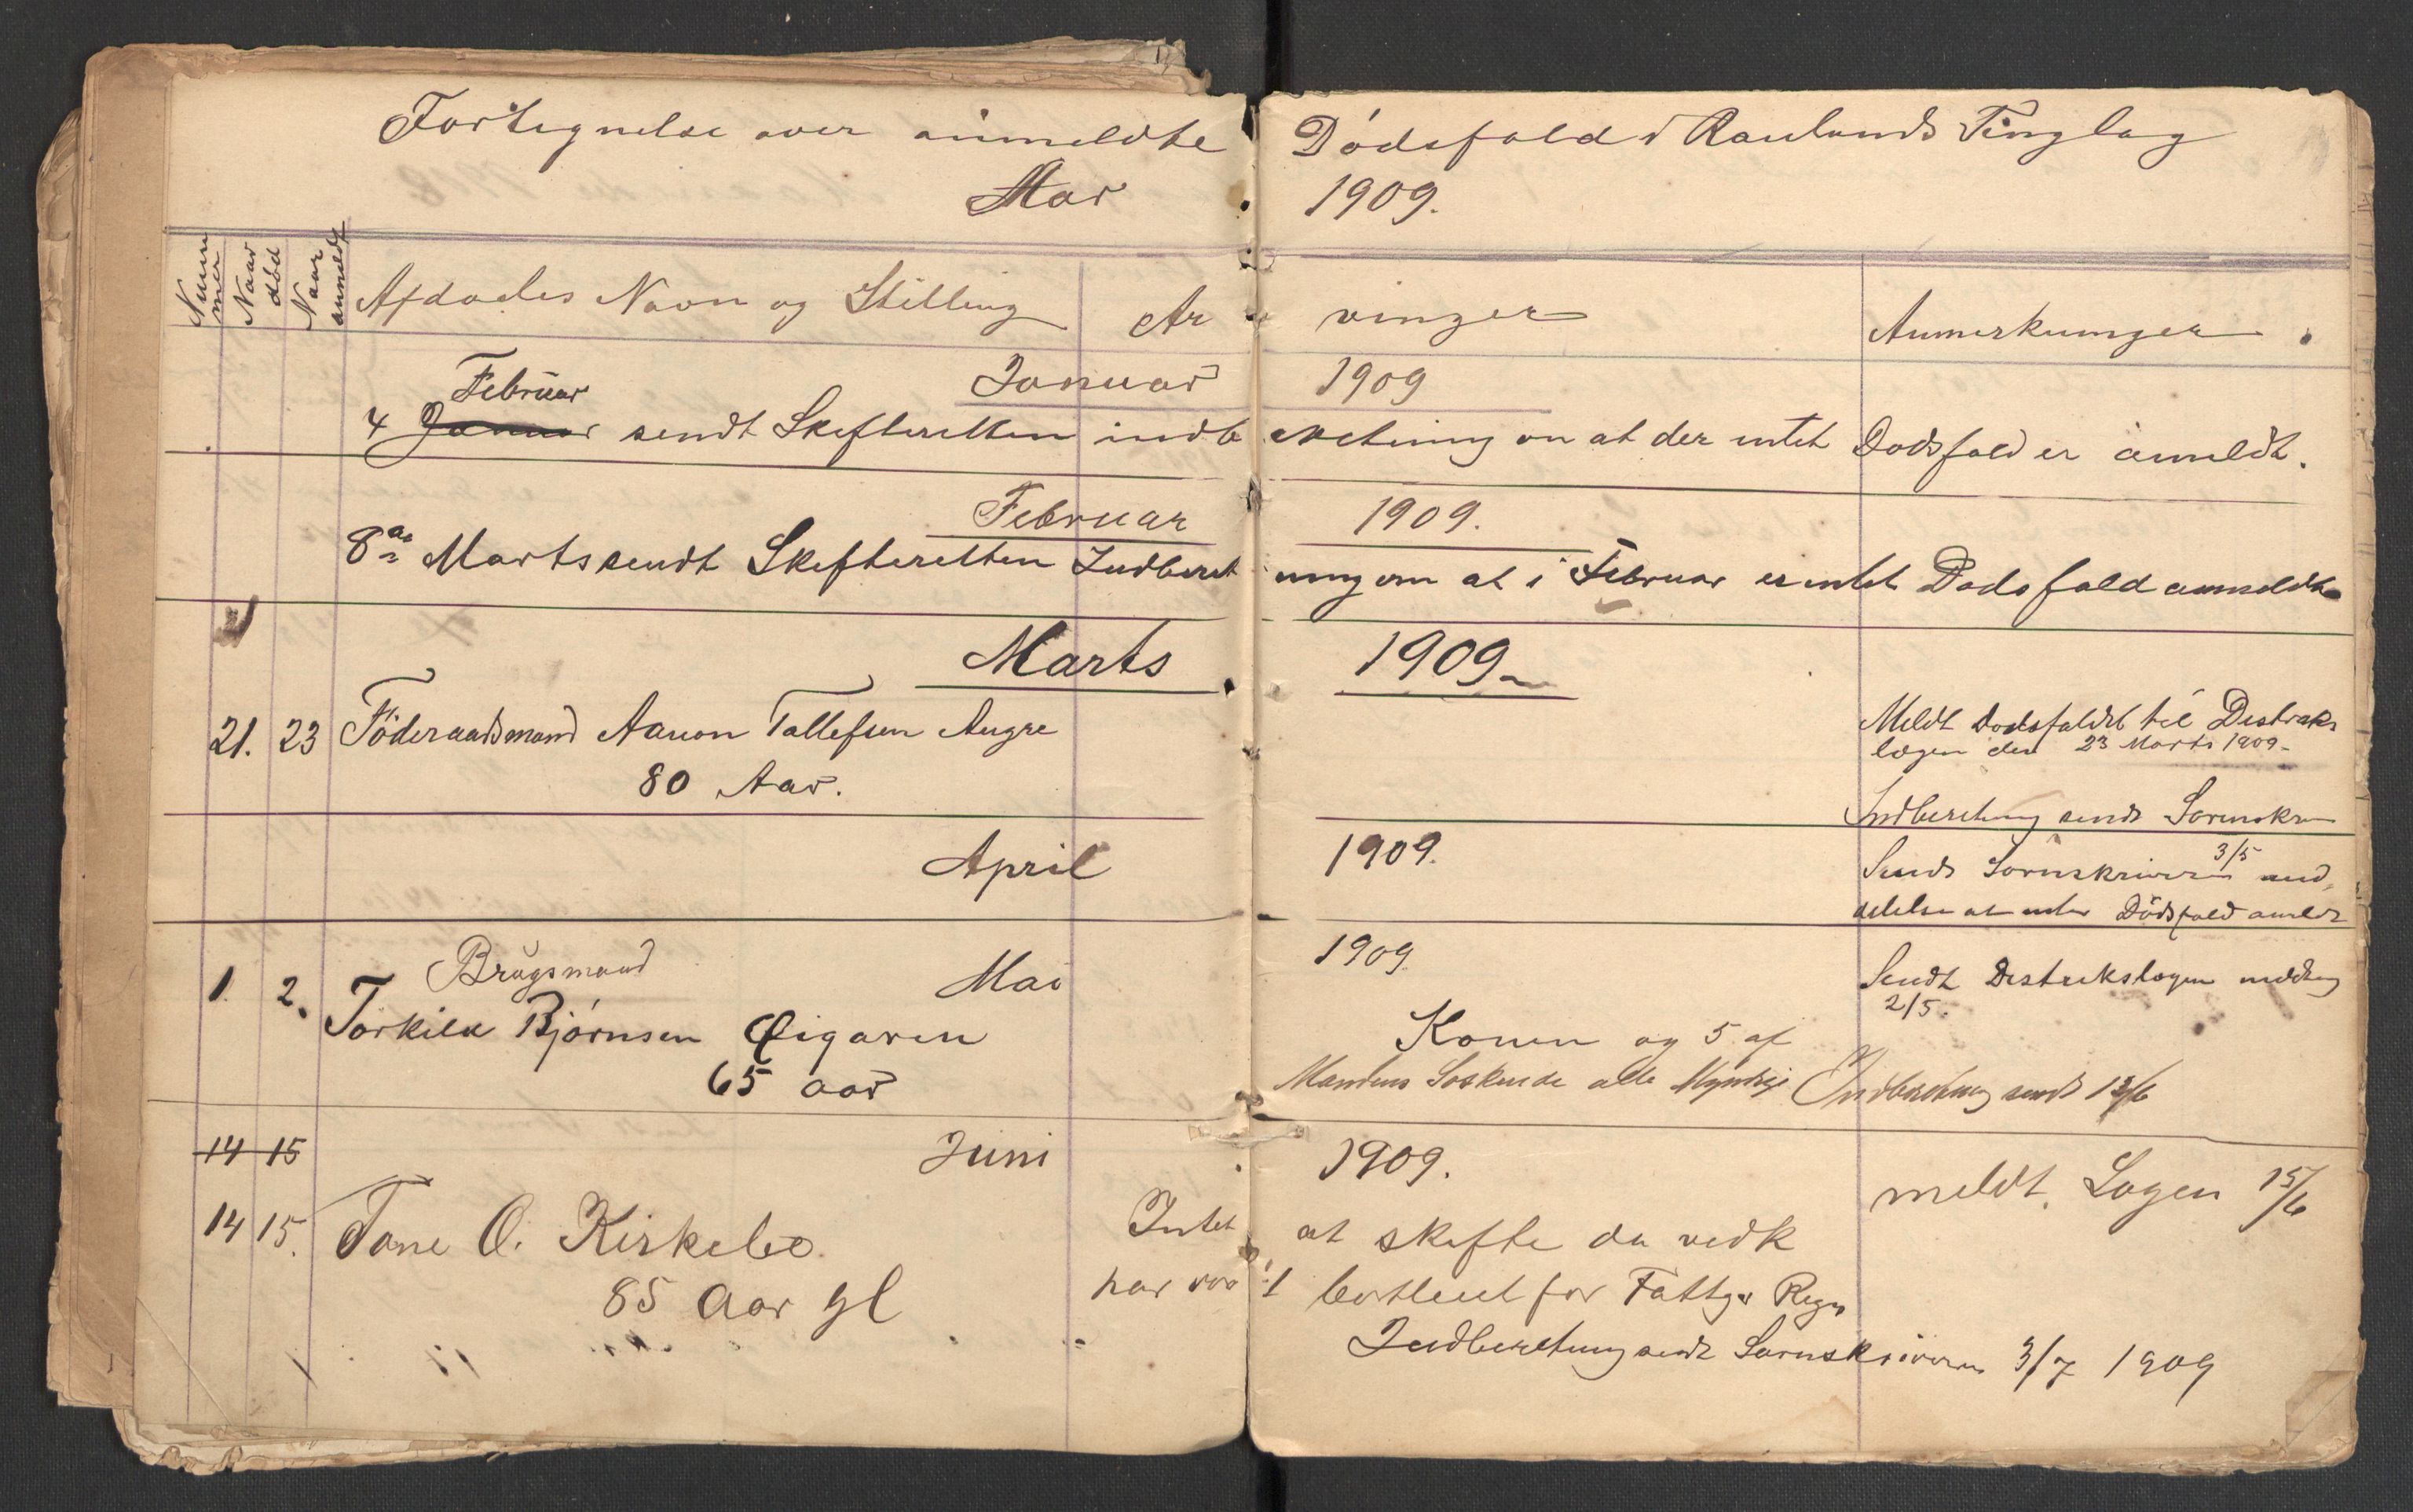 Fortegnelse over anmeldte Dödsfald i Raulands Tinglag
Aar 1909.
Num mer
Naar död
Naar anmeldt
Afdødes Navn og Stilling
Arvinger
Anmerkninger
Januar 1909
Februar
4 Januar sendt Skifteretten indberetning om at der intet Dødsfald er anmeldt.
Februar 1909.
8de Marts sendt Skifteretten Indberetning om at i Februar er intet Dødsfald anmeldt
Marts 1909
21. 23 Föderaadsmand Aanon Tallefsen
80 Aar.
Meldt Dødsfaldet til Distrikts
lægen den 23 Marts 1909-
Indberetning sendt Sorenskr
April 1909.
Sendt Sorenskriveren 3/5 med
delelse at intet Dödsfald anmeldt
Mai 1909
1. 2. Brugsmand
Torkild Bjørnsen
65 aar
Konen og 5 af
Mandens Søskende alle Myndige
Sendt Distriktslægen melding
2/5.
Indberetning sendt
14 15 Juni 1909.
14 15. Tone O. Kirkebø.
85 Aar gl
Intet at skifte da vedk
har været for Fattigv Regn
meldt Lægen 15/6
Indberetning sendt Sorenskriveren 3/7 1909